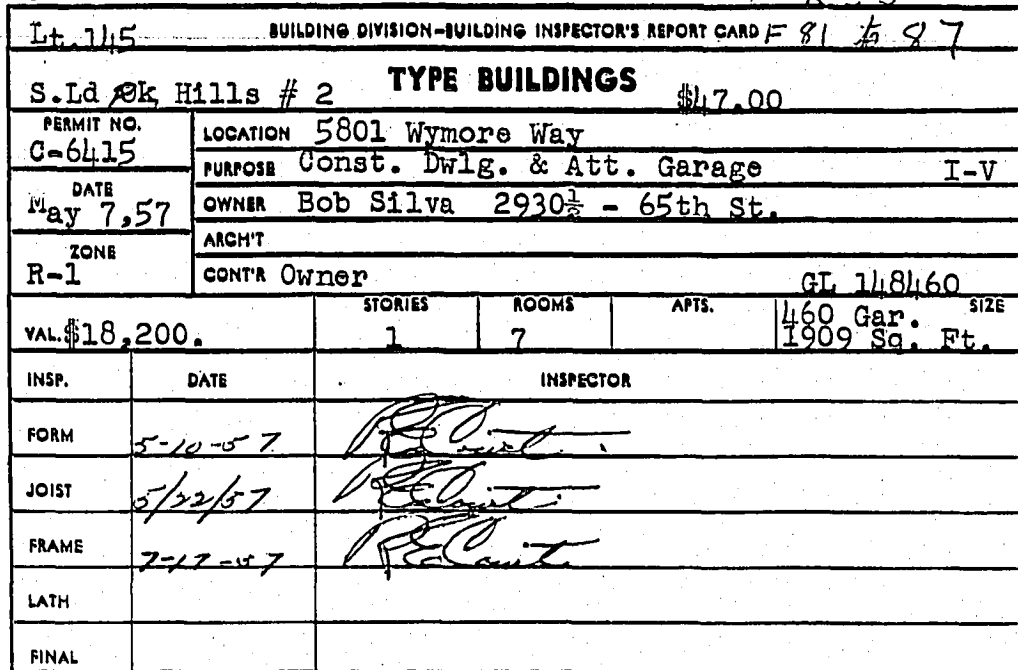 Lt. 145 BUILDING DIVISION–BUILDING INSPECTOR'S REPORT CARD F 81 87
S.Ld Ok Hills # 2 TYPE BUILDINGS $47.00
PERMIT NO.
C-6415
LOCATION 5801 Wymore Way
PURPOSE Const. Dwlg. & Att. Garage I-V
DATE
May 7,57
OWNER Bob Silva 2930½ - 65th St.
ARCH'T
ZONE
R-1
CONT'R Owner GL 148460
VAL. $18,200.
STORIES
1
ROOMS
7
APTS.
SIZE
460 Gar.
1909 Sq. Ft.
INSP. DATE INSPECTOR
FORM 5-10-57
JOIST 5/22/57
FRAME 7-17-57
LATH
FINAL